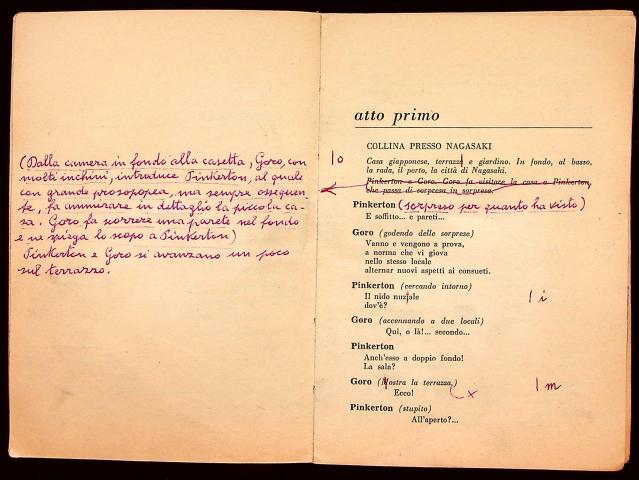 (Dalla camera in fondo alla casetta, Goro, con
molti inchini, introduce Pinkerton, al quale
con grande prosopopea, ma sempre ossequen-
te, fa ammirare in dettaglio la piccola ca-
sa. Goro fa scorrere una parete nel fondo
e ne spiega lo scopo a Pinkerton)
Pinkerton e Goro si avanzano un poco
sul terrazzo.
atto primo
COLLINA PRESSO NAGASAKI
Casa giapponese, terrazz e giardino. In fondo, al basso,
la rada, il porto, la città di Nagasaki.
Pinkerton e Goro. Goro fa visitare la casa a Pinkerton,
che passa di sorpresa in sorpresa
Pinkerton (sorpreso per quanto ha visto)
E soffitto... e pareti...
Goro (godendo delle sorprese)
Vanno e vengono a prova,
a norma che vi giova
nello stesso locale
alternar nuovi aspetti ai consueti.
Pinkerton (cercando intorno)
Il nido nuziale
dov'è?
i
Goro (accennando a due locali)
Qui, o là!... secondo...
Pinkerton
Anch'esso a doppio fondo!
La sala?
Goro (Mostra la terrazza,)
m
Ecco!
x
Pinkerton (stupito)
All'aperto?...